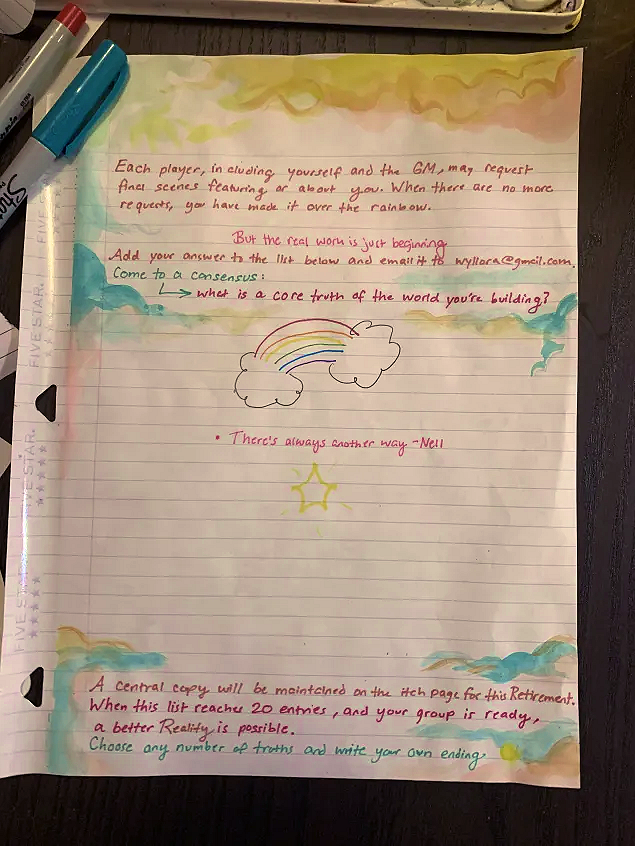 Each player, including yourself and the GM, may request
final scenes featuring or about you. When there are no more
requests, you have made it over the rainbow.
But the real work is just beginning.
Add your answer to the list below and email it to wyllora@gmail.com.
Come to a consensus:
→ what is a core truth of the world you're building?
• There's always another way -Nell
A central copy will be maintained on the itch page for this Retirement.
When this list reaches 20 entries, and your group is ready,
a better Reality is possible.
Choose any number of truths and write your own ending.
FIVE STAR.
FIVE STAR.
FIVE STAR.
FIVE STAR.